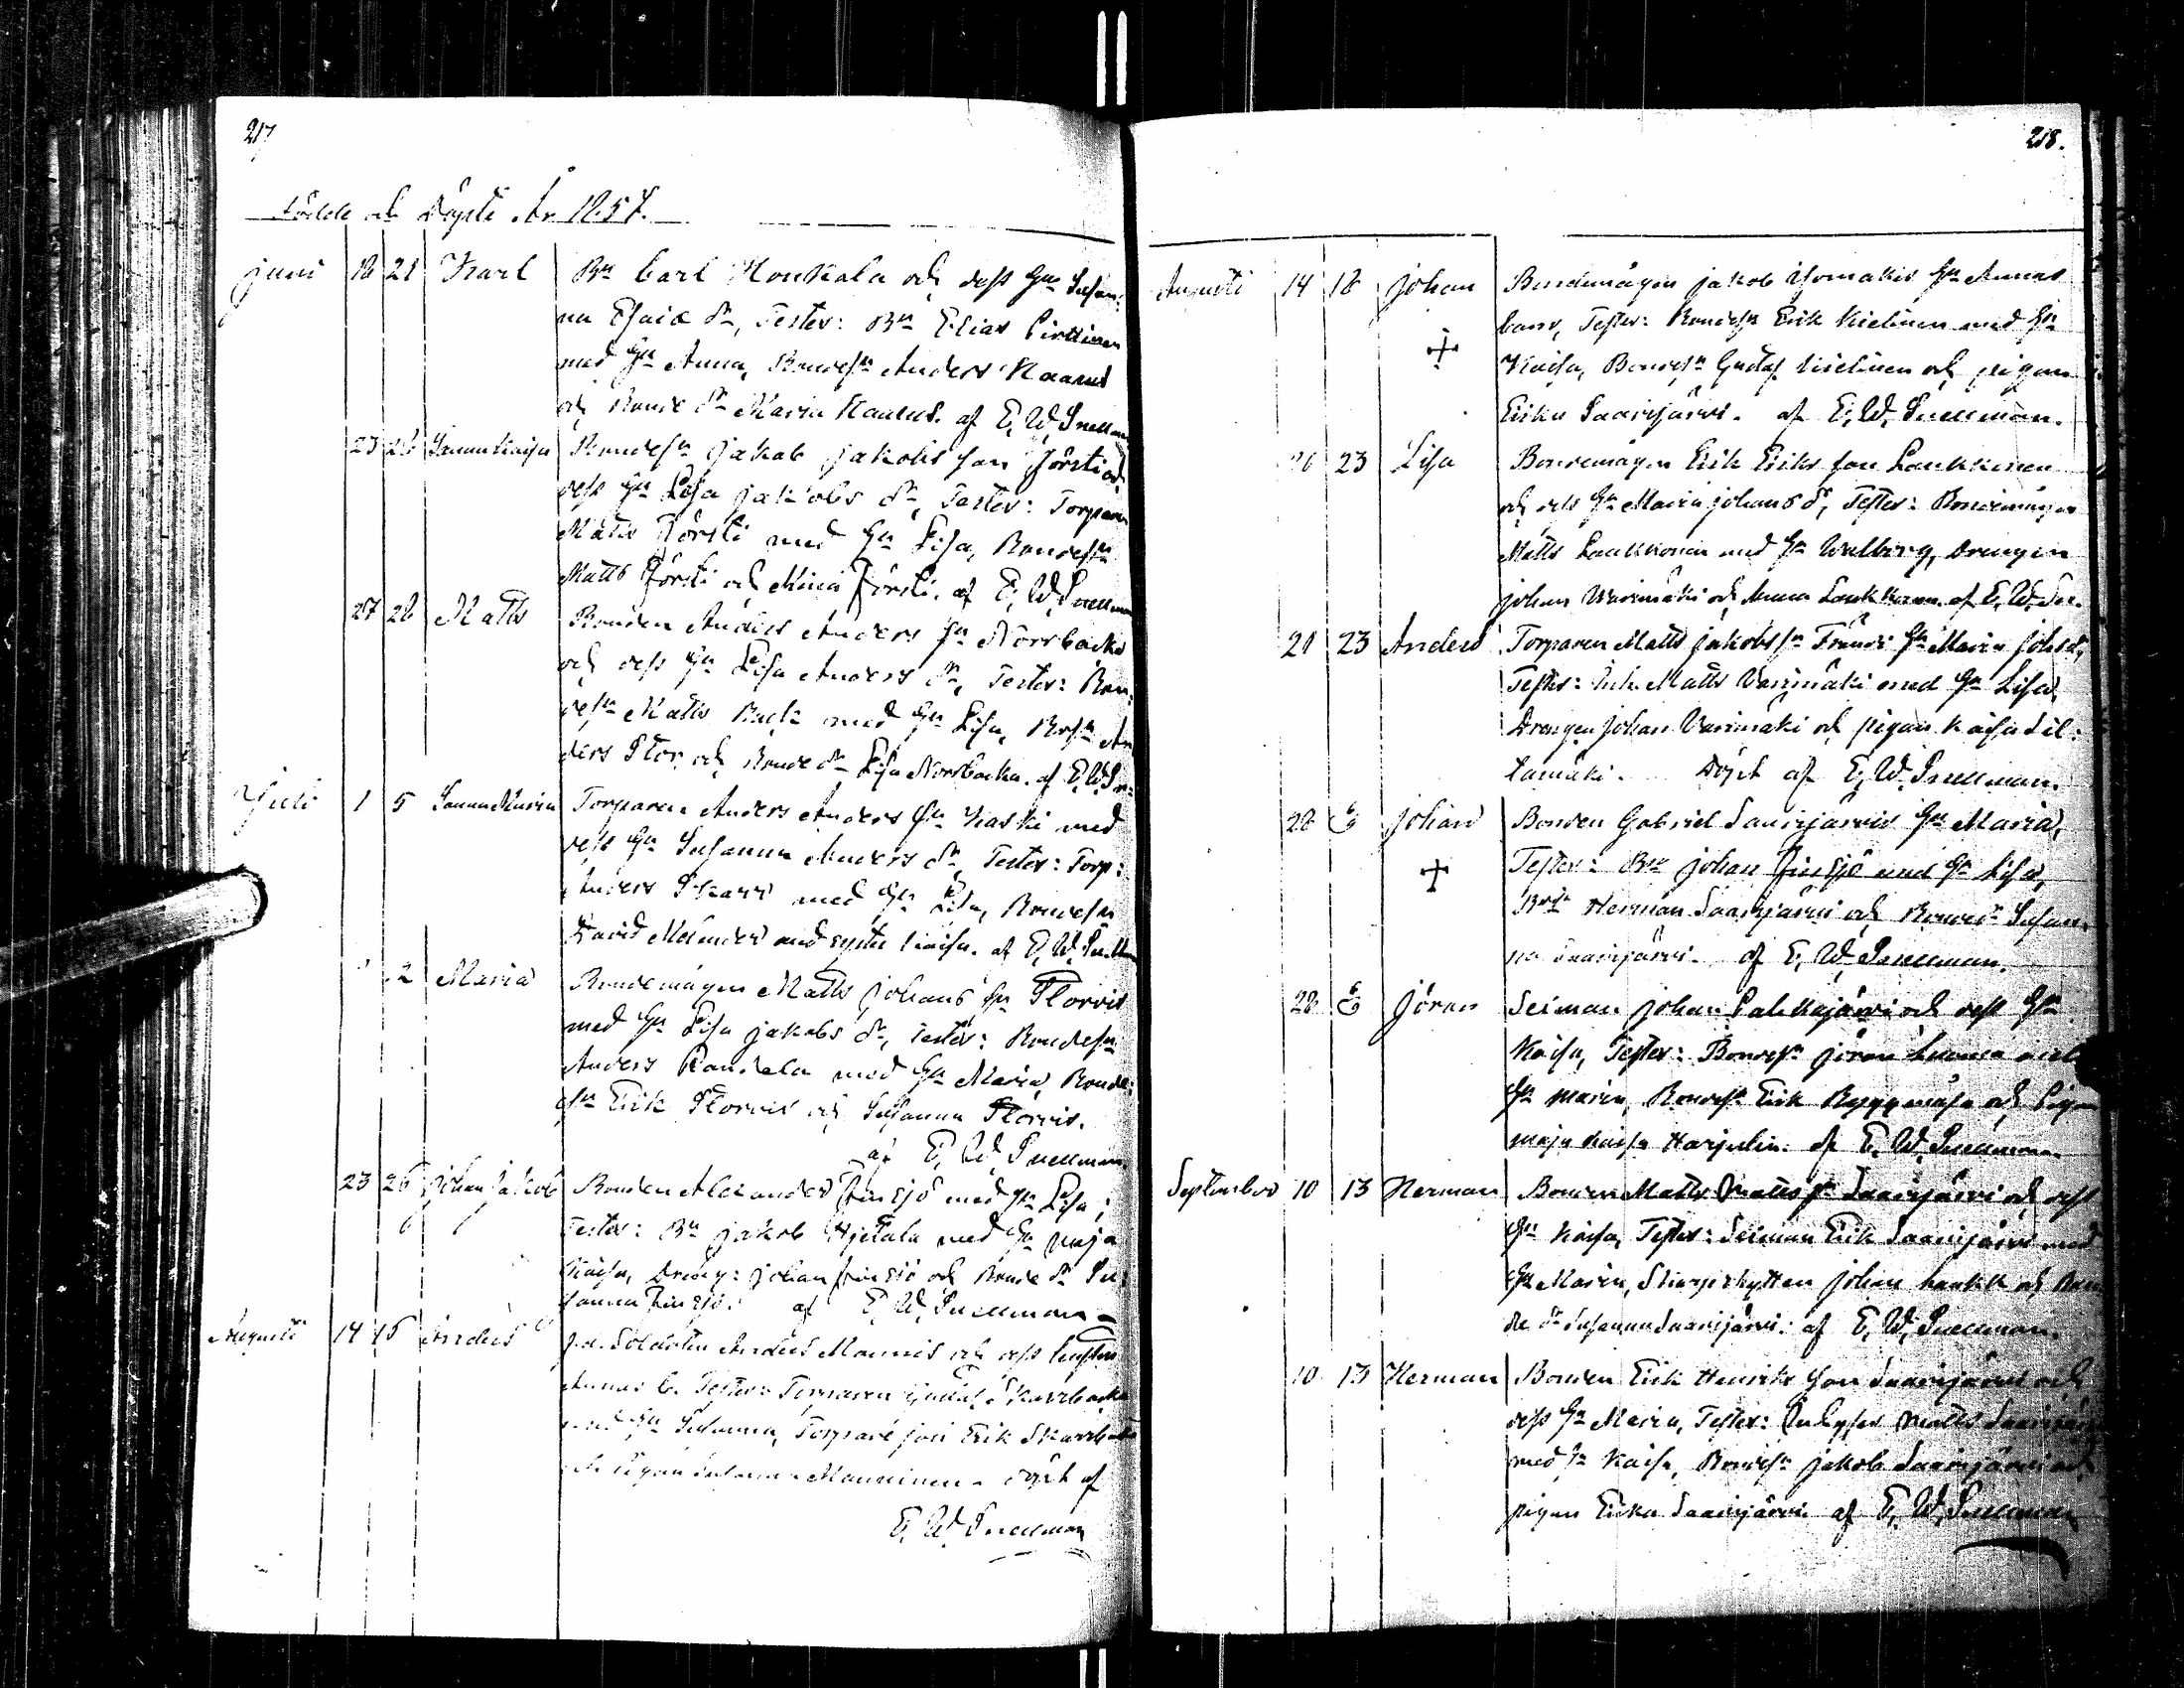 217
Födde och Döpte År 1857.
Juni 18 21 Karl Bn Carl Honkala och dess Hu Susan-
na Esaiæ dr, Testes: Bn Elias Pirttinen
med Hu Anna, Bondesn Anders Kaares
och Bonde dr Maria Kaares. af E. W. Snellman
23 28 Sanna Kaisa Bondesn Jakob Jakobs son Försti och
dess Hu Lisa Jakobs dr, Testes: Torparen
Matts Försti med Hu Lisa, Bondesn
Matts Försti och Mina Försti. af E. W. Snellman
27 28 Matts Bonden Anders Anders sn Norrbacka
och dess Hu Lisa Anders dr, Testes: Bon-
desn Matts Back med Hu Lisa, Bdsn An
ders Stor och Bonde dr Lisa Norrbacka. af E. W. Sn-
Juli 1 5 Sanna Maria Torparen Anders Anders sn Kaski med
dess Hu Susanna Anders dr, Testes: Torp:
Anders med Hu Lisa, Bondesn
David Melender med syster Kaisa. af E. W. Snellman
2 Maria Bondemågen Matts Johans sn Storvis
med Hu Lisa Jakobs dr, Testes: Bondesn
Anders Randala med Hu Maria, Bonde-
sn Erik Storvis och Susanna Storvis.
af E. W. Snellman
23 26 Johan Jakob Bonden Alexander Finsjö med Hu Lisa;
Testes: Bn Jakob Hjetala med Hu Maja
Kaisa, Dreng: Johan Finsjö och Bonde dr Su-
sanna Finsjö. af E. W. Snellman
Augusti 14 15 Anders f.d. Soldaten Anders Mannis och dess hustru
Annas b. Testes: Torparen Gustaf Skarrbacka
med Hu Susanna, Torpare son Erik Skarrbacka
och Pigan Susanna Manninen. döpt af
E. W. Snellman
218.
Augusti 14 18 Johan Bondemågen Jakob Isomäkis Hu Annas
barn, Testes: Bondesn Erik Kielinen med Hu
Kaisa, Bondesn Gustaf Kielinen och pigan
Erika Saarijärvi. af E. W. Snellman.
20 23 Lisa Bondemågen Erik Eriks son Laukkonen
och dess Hu Maria Johans dr, Testes: Bondemågen
Matts Laukkonen med Hu Walborg, Drengen
Johan Warimäki och Anna Laukkonen. af E. W. Sn.
21 23 Anders Torparen Matts Jakobs sn Hu Maria Johsd,
Testes: Inh. Matts Varimäki med Hu Lisa,
Drengen Johan Varimäki och pigan Kaisa Sil-
tamäki. Döpt af E. W. Snellman.
28 6 Johan Bonden Gabriel Saarijärvis Hu Maria,
Testes: Bn Johan Finsjö med Hu Lisa,
Bdsn Herman Saarijärvi och Bonde dr Susan-
na Saarijärvi. af E. W. Snellman.
28 6 Jöran Seiman Johan Palckajärvi och dess Hu
Kaisa, Testes: Bondesn Jöran Luoma med
Hu Maria, Bondesn Erik Ryggmåsa och Pigan
Maja Kaisa Harjulin. af E. W. Snellman.
September 10 13 Herman Bonden Matts Matts sn Saarijärvi och dess
Hu Kaisa, Testes: Seiman Erik Saarijärvi med
Hu Maria, Skarpskytten Johan Haukk och Bon
de dr Susanna Saarijärvi. af E. W. Snellman.
10 13 Herman Bonden Erik Henriks son Saarijärvi och
dess Hu Maria, Testes: Inhyses Matts Saarijärvi
med Hu Kaisa, Bondesn Jakob Saarijärvi och
pigan Erika Saarijärvi af E. W. Snellman